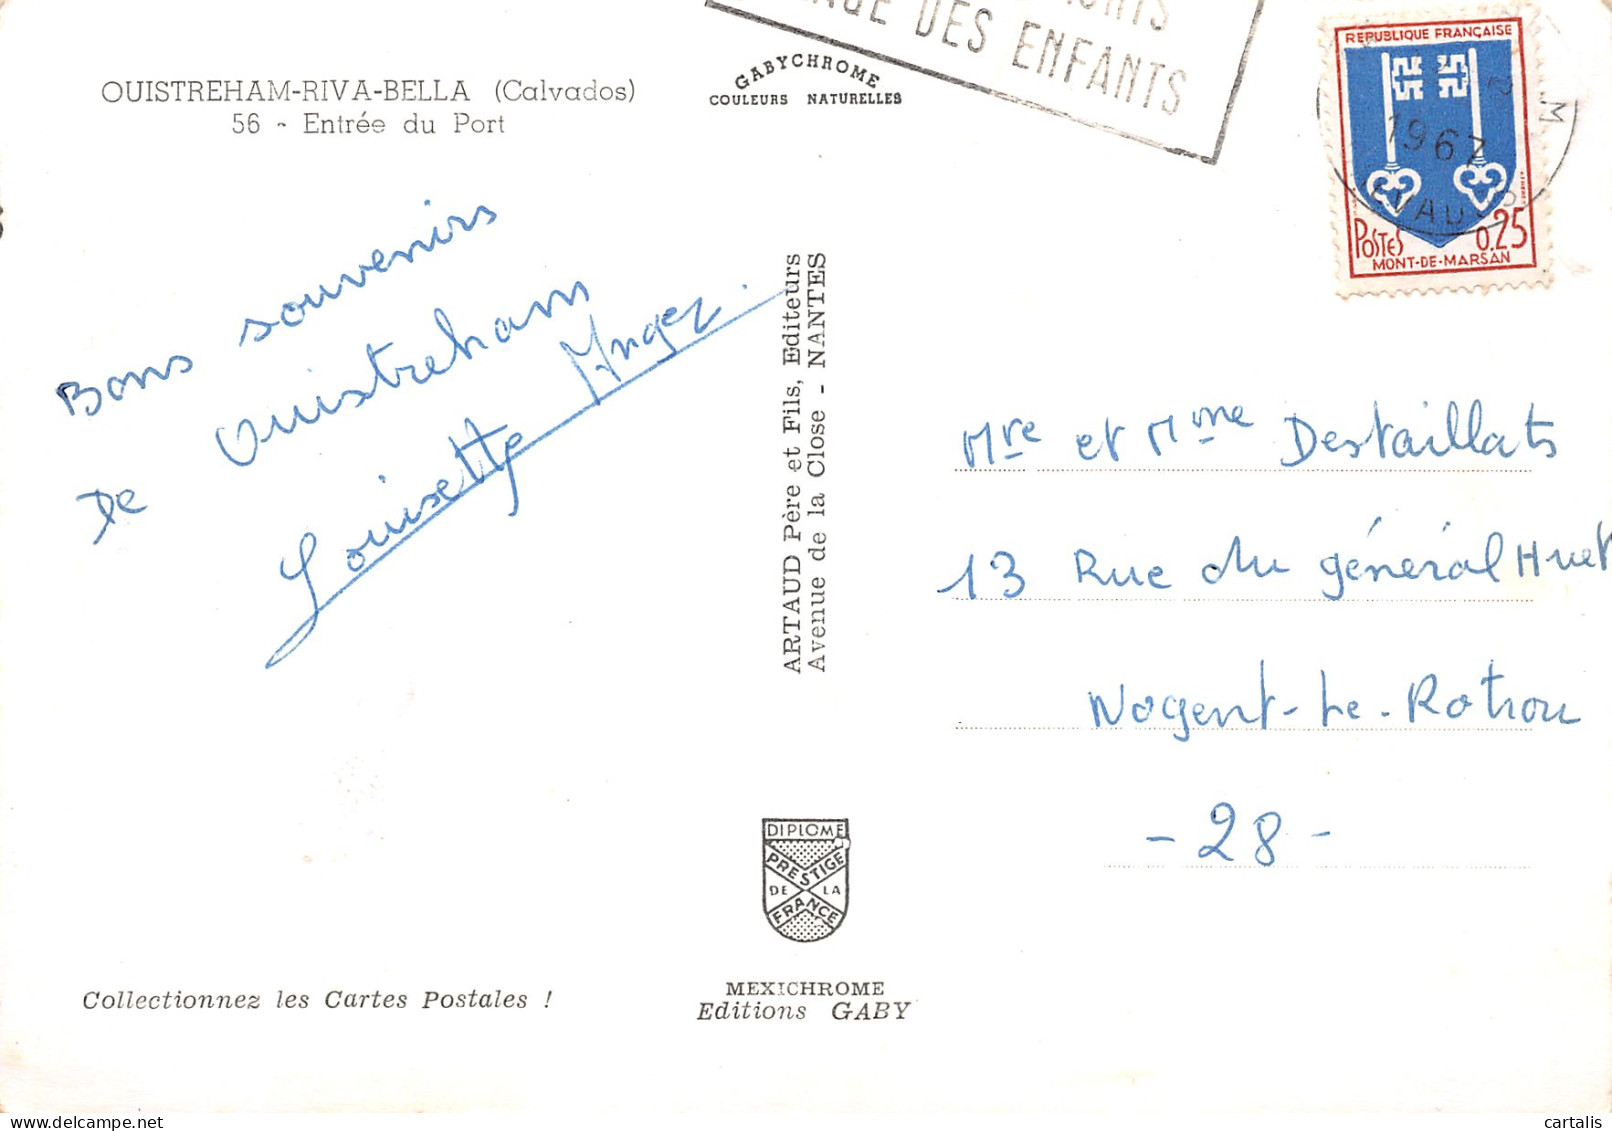 OUISTREHAM-RIVA-BELLA (Calvados)
56 - Entrée du Port
GABYCHROME
COULEURS NATURELLES
DES ENFANTS
REPUBLIQUE FRANÇAISE
1967
POSTES 0,25
MONT-DE-MARSAN
Bons souvenirs
de Ouistreham
Louisette Anger.
ARTAUD Père et Fils, Editeurs
Avenue de la Close - NANTES
Mre et Mme Destaillats
13 Rue du général Huet
Nogent-Le-Rotrou
- 28 -
DIPLOME
PRESTIGE
DE LA
FRANCE
MEXICHROME
Editions GABY
Collectionnez les Cartes Postales !
cartalis